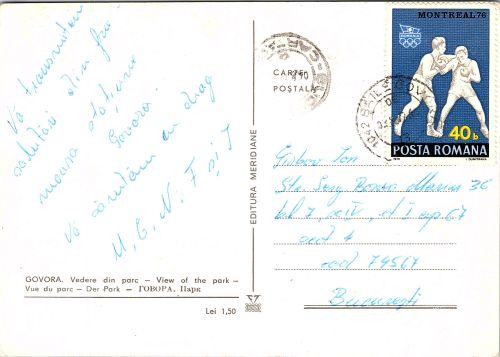 Vă transmitem
salutări din fru-
moasa stațiune
Govora.
Vă sărutăm cu drag
M. C. N. F și I
GOVORA. Vedere din parc – View of the park –
Vue du parc – Der Park – ГОВОРА. Парк
Lei 1,50
EDITURA MERIDIANE
CARTE
POȘTALĂ
MONTREAL 76
ROMANIA
40b
POSTA ROMANA
Ion
Str. Serg
bl 7, sc IV, et I ap. 67
sect 4
cod 74567
București